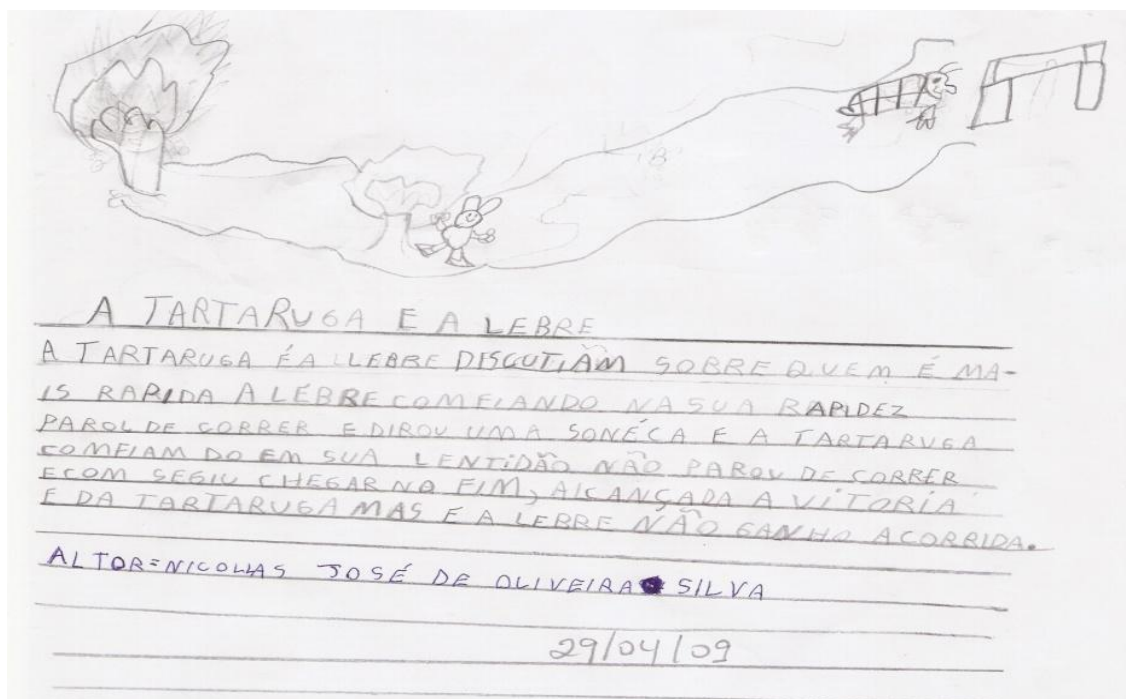 A TARTARUGA E A LEBRE
A TARTARUGA ÉA LEBRE DISCUTIÃM SOBRE QUEM É MA-
IS RAPIDA A LEBRE COMFIANDO NA SUA RAPIDEZ
PAROU DE CORRER E DIROU UMA SONÉCA E A TARTARUGA
COMFIAM DO EM SUA LENTIDÃO NÃO PAROU DE CORRER
ECOM SEGIU CHEGAR NO FIM, ALCANÇADA A VITORIA
E DA TARTARUGA MAS E A LEBRE NÃO GANHO ACORRIDA.
ALTOR=NICOLLAS JOSÉ DE OLIVEIRA SILVA
29/04/09